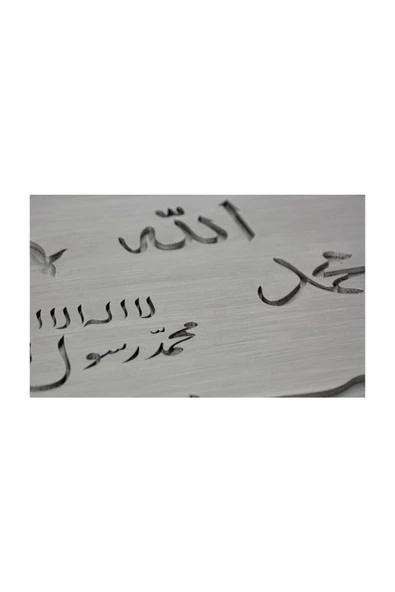 الله
محمد
لا اله الا ا
محمد رسول